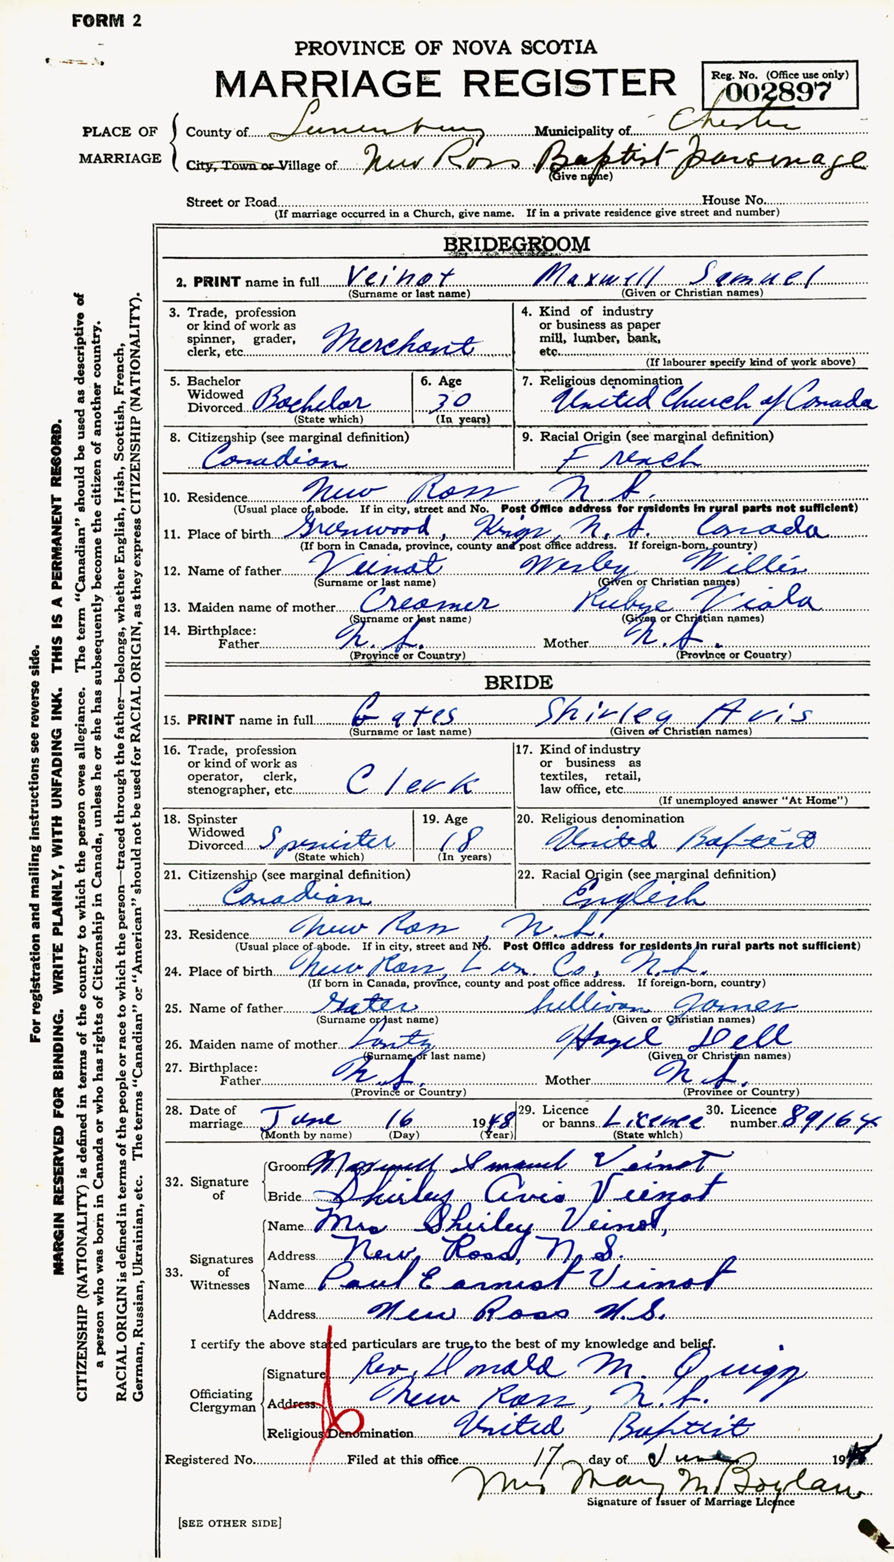 FORM 2
PROVINCE OF NOVA SCOTIA
MARRIAGE REGISTER
Reg. No. (Office use only)
002897
PLACE OF MARRIAGE
County of Lunenburg Municipality of Chester
City, Town or Village of New Ross Baptist Parsonage
(Give name)
Street or Road House No.
(If marriage occurred in a Church, give name. If in a private residence give street and number)
BRIDEGROOM
2. PRINT name in full Veinot Maxwell Samuel
(Surname or last name) (Given or Christian names)
3. Trade, profession or kind of work as spinner, grader, clerk, etc. Merchant
4. Kind of industry or business as paper mill, lumber, bank, etc.
(If labourer specify kind of work above)
5. Bachelor Widowed Divorced Bachelor
(State which)
6. Age 30
(In years)
7. Religious denomination
United Church of Canada
8. Citizenship (see marginal definition)
Canadian
9. Racial Origin (see marginal definition)
French
10. Residence New Ross, N.S.
(Usual place of abode. If in city, street and No. Post Office address for residents in rural parts not sufficient)
11. Place of birth Greenwood, Kings, N.S. Canada
(If born in Canada, province, county and post office address. If foreign-born, country)
12. Name of father Veinot Wesley Willis
(Surname or last name) (Given or Christian names)
13. Maiden name of mother Creamer Rubye Viola
(Surname or last name) (Given or Christian names)
14. Birthplace:
Father N.S. Mother N.S.
(Province or Country) (Province or Country)
BRIDE
15. PRINT name in full Gates Shirley Avis
(Surname or last name) (Given or Christian names)
16. Trade, profession or kind of work as operator, clerk, stenographer, etc. Clerk
17. Kind of industry or business as textiles, retail, law office, etc.
(If unemployed answer "At Home")
18. Spinster Widowed Divorced Spinister
(State which)
19. Age 18
(In years)
20. Religious denomination
United Baptist
21. Citizenship (see marginal definition)
Canadian
22. Racial Origin (see marginal definition)
English
23. Residence New Ross, N.S.
(Usual place of abode. If in city, street and No. Post Office address for residents in rural parts not sufficient)
24. Place of birth New Ross, Lun. Co., N.S.
(If born in Canada, province, county and post office address. If foreign-born, country)
25. Name of father Gates Sullivan James
(Surname or last name) (Given or Christian names)
26. Maiden name of mother Hazel Dell
(Surname or last name) (Given or Christian names)
27. Birthplace:
Father N.S. Mother N.S.
(Province or Country) (Province or Country)
28. Date of marriage June 16 1948
(Month by name) (Day) (Year)
29. Licence or banns Licence
(State which)
30. Licence number 89164
32. Signature of
Groom Maxwell Samuel Veinot
Bride Shirley Avis Veinot
33. Signatures of Witnesses
Name Mrs Shirley Veinot,
Address New Ross, N.S.
Name Paul Earnist Veinot
Address New Ross N.S.
I certify the above stated particulars are true to the best of my knowledge and belief.
Officiating Clergyman
Signature Rev. Donald M. Quigg
Address New Ross, N.S.
Religious Denomination United Baptist
Registered No. Filed at this office 17 day of June 1948
Mrs Mary M Boylan
Signature of Issuer of Marriage Licence
[SEE OTHER SIDE]
For registration and mailing instructions see reverse side.
MARGIN RESERVED FOR BINDING. WRITE PLAINLY, WITH UNFADING INK. THIS IS A PERMANENT RECORD.
CITIZENSHIP (NATIONALITY) is defined in terms of the country to which the person owes allegiance. The term "Canadian" should be used as descriptive of
a person who was born in Canada or who has rights of Citizenship in Canada, unless he or she has subsequently become the citizen of another country.
RACIAL ORIGIN is defined in terms of the people or race to which the person—traced through the father—belongs, whether English, Irish, Scottish, French,
German, Russian, Ukrainian, etc. The terms "Canadian" or "American" should not be used for RACIAL ORIGIN, as they express CITIZENSHIP (NATIONALITY).